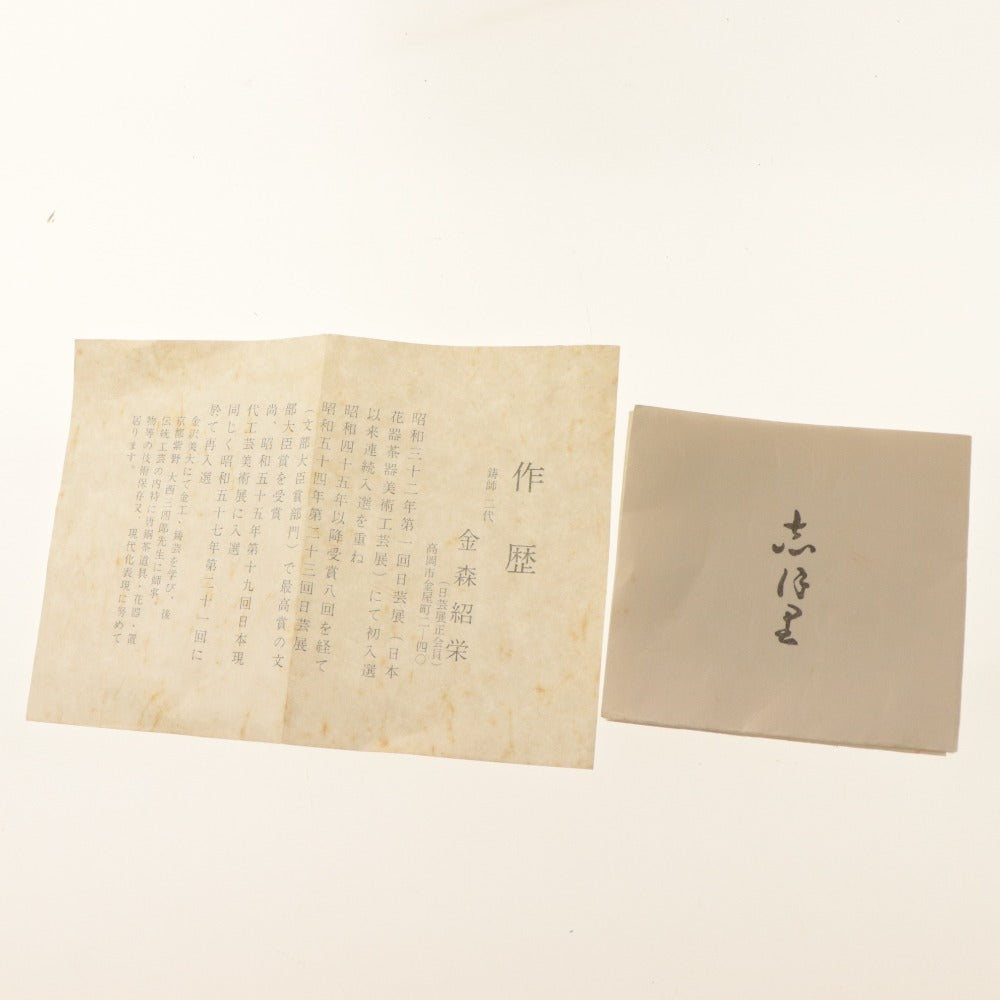 作歴
鋳師 二代
金森紹栄
(日芸展正会員)
高岡市金屋町二―四〇
昭和三十二年第一回日芸展(日本
花器茶器美術工芸展)にて初入選
以来連続入選を重ね
昭和四十五年以降受賞八回を経て
昭和五十四年第二十三回日芸展
(文部大臣賞部門)で最高賞の文
部大臣賞を受賞
尚、昭和五十五年第十九回日本現
代工芸美術展に入選
同じく昭和五十七年第二十一回に
於て再入選
金沢美大にて金工・鋳芸を学び・後
京都紫野 大西三四郎先生に師事。
伝統工芸の内特に青銅茶道具・花器・置
物等の技術保存又、現代化表現に努めて
居ります。